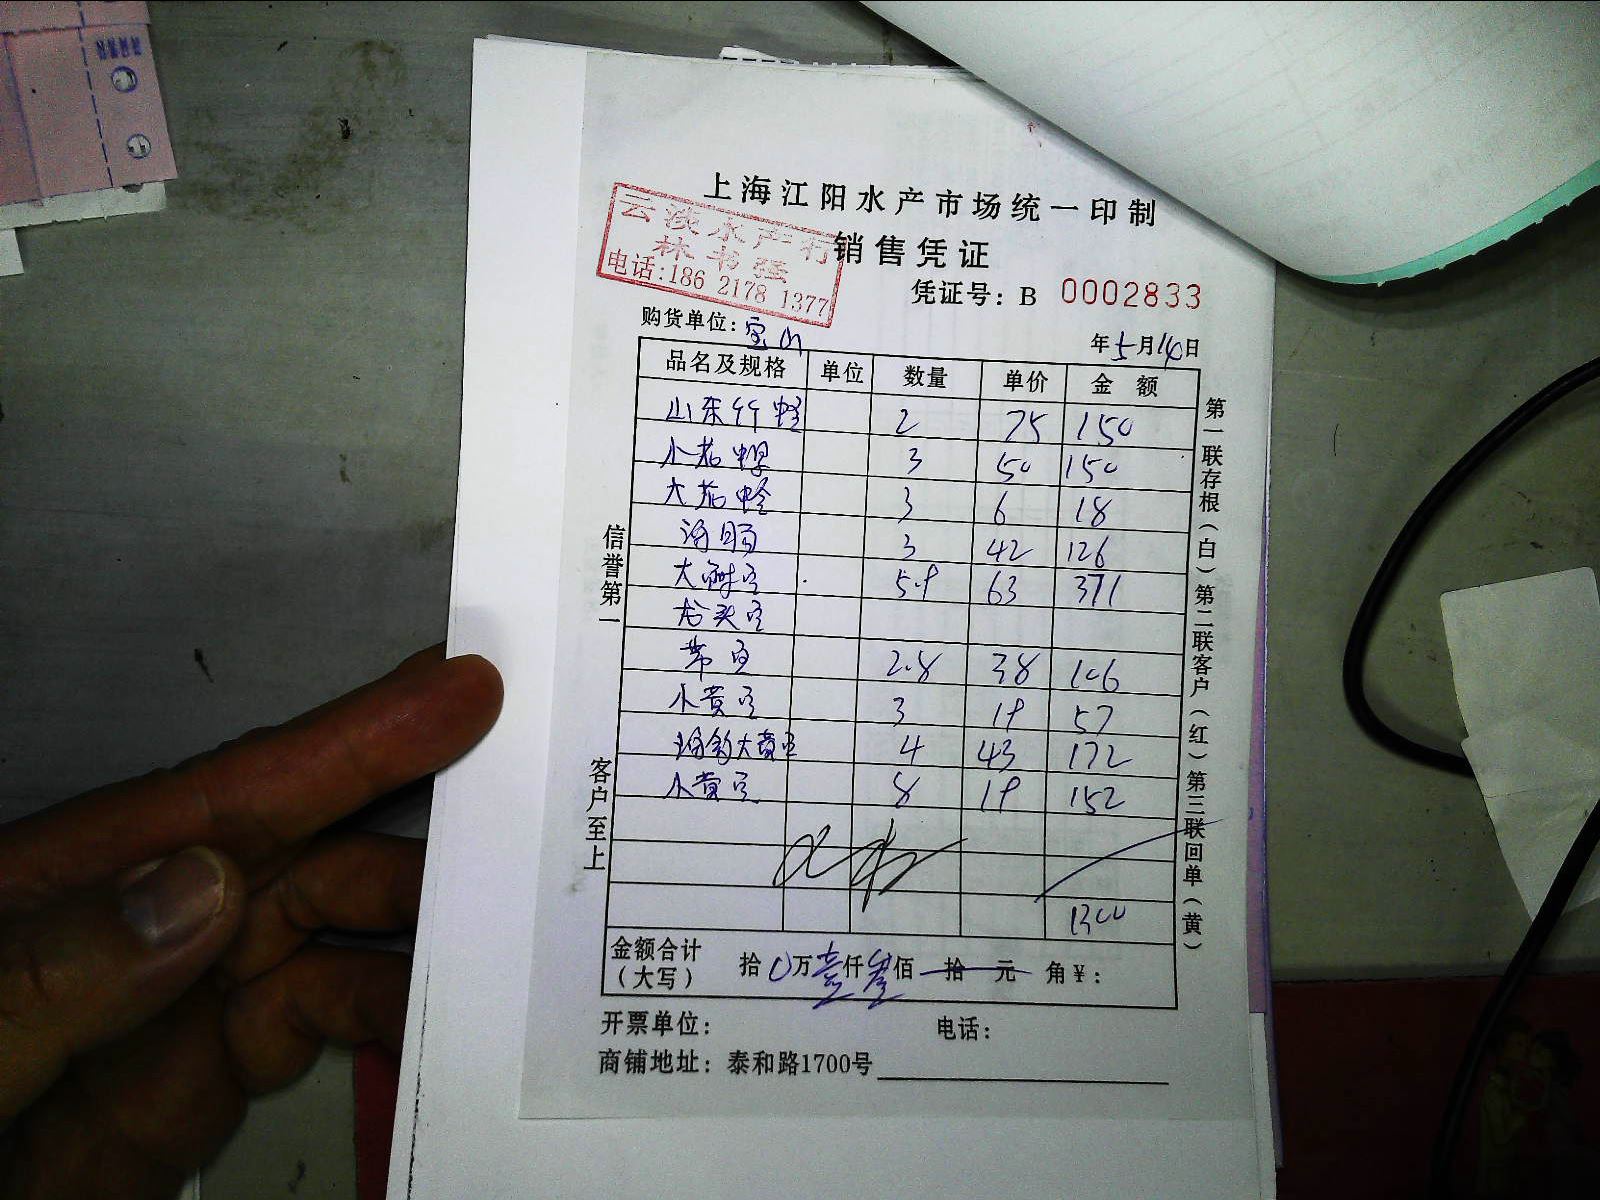 上海江阳水产市场统一印制
云淡水产行
林书强
电话:186 2178 1377
销售凭证
凭证号: B 0002833
购货单位: 宝山 年5月14日
品名及规格 单位 数量 单价 金额
山东竹蛏 2 75 150
小花螺 3 50 150
大花蛤 3 6 18
海肠 3 42 126
大鲥鱼 5.9 63 371
龙头鱼
带鱼 2.8 38 106
小黄鱼 3 19 57
大黄鱼 4 43 172
小黄鱼 8 19 152
1300
金额合计 拾0万壹仟叁佰拾元角¥:
(大写)
开票单位: 电话:
商铺地址: 泰和路1700号
信誉第一
客户至上
第一联存根(白)第二联客户(红)第三联回单(黄)